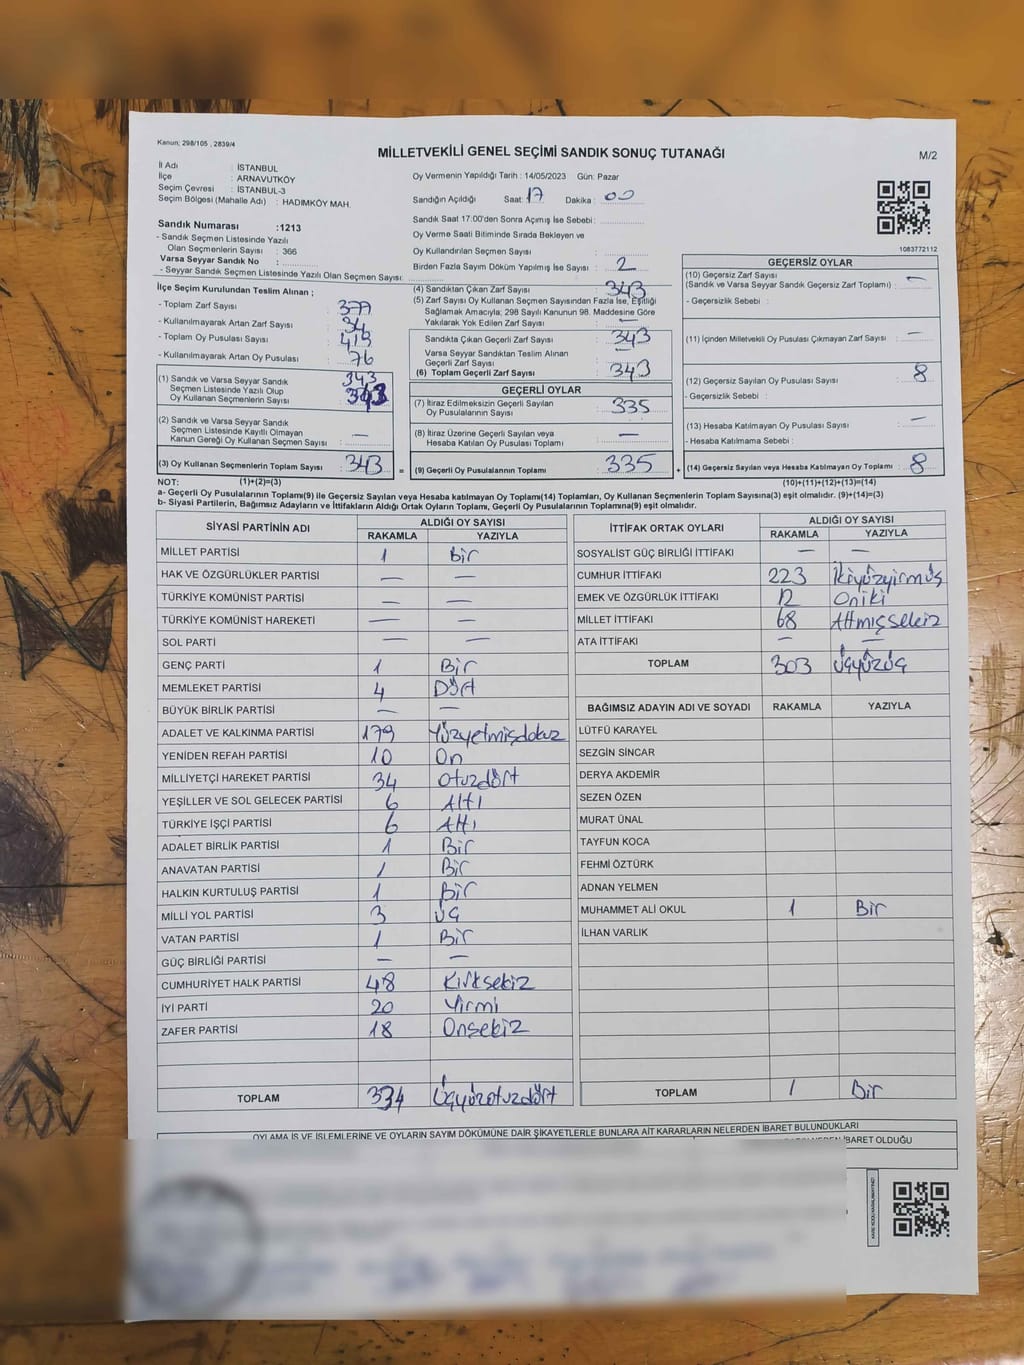 Kanun; 298/105 , 2839/4
MİLLETVEKİLİ GENEL SEÇİMİ SANDIK SONUÇ TUTANAĞI
M/2
İl Adı : İSTANBUL
İlçe : ARNAVUTKÖY
Seçim Çevresi : İSTANBUL-3
Seçim Bölgesi (Mahalle Adı) : HADIMKÖY MAH.
Sandık Numarası :1213
- Sandık Seçmen Listesinde Yazılı
Olan Seçmenlerin Sayısı : 366
Varsa Seyyar Sandık No :
- Seyyar Sandık Seçmen Listesinde Yazılı Olan Seçmen Sayısı:
Oy Vermenin Yapıldığı Tarih : 14/05/2023 Gün: Pazar
Sandığın Açıldığı Saat: 17 Dakika : 00
Sandık Saat 17:00'den Sonra Açımış İse Sebebi :
Oy Verme Saati Bitiminde Sırada Bekleyen ve
Oy Kullandırılan Seçmen Sayısı :
Birden Fazla Sayım Döküm Yapılmış İse Sayısı : 2
1083772112
İlçe Seçim Kurulundan Teslim Alınan ;
- Toplam Zarf Sayısı : 377
- Kullanılmayarak Artan Zarf Sayısı : 34
- Toplam Oy Pusulası : 419
- Kullanılmayarak Artan Oy Pusulası : 76
(1) Sandık ve Varsa Seyyar Sandık 343
Seçmen Listesinde Yazılı Olup
Oy Kullanan Seçmenlerin Sayısı : 343
(2) Sandık ve Varsa Seyyar Sandık
Seçmen Listesinde Kayıtlı Olmayan
Kanun Gereği Oy Kullanan Seçmen Sayısı : —
(3) Oy Kullanan Seçmenlerin Toplam Sayısı : 343 =
(4) Sandıktan Çıkan Zarf Sayısı : 343
(5) Zarf Sayısı Oy Kullanan Seçmen Sayısından Fazla İse, Eşitliği
Sağlamak Amacıyla; 298 Sayılı Kanunun 98. Maddesine Göre
Yakılarak Yok Edilen Zarf Sayısı : —
Sandıkta Çıkan Geçerli Zarf Sayısı : 343
Varsa Seyyar Sandıktan Teslim Alınan
Geçerli Zarf Sayısı : —
(6) Toplam Geçerli Zarf Sayısı : 343
GEÇERLİ OYLAR
(7) İtiraz Edilmeksizin Geçerli Sayılan
Oy Pusulalarının Sayısı : 335
(8) İtiraz Üzerine Geçerli Sayılan veya
Hesaba Katılan Oy Pusulası Toplamı : —
(9) Geçerli Oy Pusulalarının Toplamı : 335 +
GEÇERSİZ OYLAR
(10) Geçersiz Zarf Sayısı
(Sandık ve Varsa Seyyar Sandık Geçersiz Zarf Toplamı) : —
- Geçersizlik Sebebi :
(11) İçinden Milletvekili Oy Pusulası Çıkmayan Zarf Sayısı : —
(12) Geçersiz Sayılan Oy Pusulası Sayısı : 8
- Geçersizlik Sebebi :
(13) Hesaba Katılmayan Oy Pusulası Sayısı : —
- Hesaba Katılmama Sebebi :
(14) Geçersiz Sayılan veya Hesaba Katılmayan Oy Toplamı : 8
NOT: (1)+(2)=(3) (10)+(11)+(12)+(13)=(14)
a- Geçerli Oy Pusulalarının Toplamı(9) ile Geçersiz Sayılan veya Hesaba katılmayan Oy Toplamı(14) Toplamları, Oy Kullanan Seçmenlerin Toplam Sayısına(3) eşit olmalıdır. (9)+(14)=(3)
b- Siyasi Partilerin, Bağımsız Adayların ve İttifakların Aldığı Ortak Oyların Toplamı, Geçerli Oy Pusulalarının Toplamına(9) eşit olmalıdır.
SİYASİ PARTİNİN ADI ALDIĞI OY SAYISI
RAKAMLA YAZIYLA
MİLLET PARTİSİ 1 Bir
HAK VE ÖZGÜRLÜKLER PARTİSİ — —
TÜRKİYE KOMÜNİST PARTİSİ — —
TÜRKİYE KOMÜNİST HAREKETİ — —
SOL PARTİ — —
GENÇ PARTİ 1 Bir
MEMLEKET PARTİSİ 4 Dört
BÜYÜK BİRLİK PARTİSİ — —
ADALET VE KALKINMA PARTİSİ 179 Yüzyetmişdokuz
YENİDEN REFAH PARTİSİ 10 On
MİLLİYETÇİ HAREKET PARTİSİ 34 otuzdört
YEŞİLLER VE SOL GELECEK PARTİSİ 6 Altı
TÜRKİYE İŞÇİ PARTİSİ 6 Altı
ADALET BİRLİK PARTİSİ 1 Bir
ANAVATAN PARTİSİ 1 Bir
HALKIN KURTULUŞ PARTİSİ 1 Bir
MİLLİ YOL PARTİSİ 3 üç
VATAN PARTİSİ 1 Bir
GÜÇ BİRLİĞİ PARTİSİ — —
CUMHURİYET HALK PARTİSİ 48 Kırksekiz
İYİ PARTİ 20 Yirmi
ZAFER PARTİSİ 18 Onsekiz
TOPLAM 334 Üçyüzotuzdört
İTTİFAK ORTAK OYLARI ALDIĞI OY SAYISI
RAKAMLA YAZIYLA
SOSYALİST GÜÇ BİRLİĞİ İTTİFAKI — —
CUMHUR İTTİFAKI 223 İkiyüzyirmüç
EMEK VE ÖZGÜRLÜK İTTİFAKI 12 Oniki
MİLLET İTTİFAKI 68 Altmışsekiz
ATA İTTİFAKI — —
TOPLAM 303 Üçyüzüç
BAĞIMSIZ ADAYIN ADI VE SOYADI RAKAMLA YAZIYLA
LÜTFÜ KARAYEL
SEZGİN SİNCAR
DERYA AKDEMİR
SEZEN ÖZEN
MURAT ÜNAL
TAYFUN KOCA
FEHMİ ÖZTÜRK
ADNAN YELMEN
MUHAMMET ALİ OKUL 1 Bir
İLHAN VARLIK
TOPLAM 1 Bir
OYLAMA İŞ VE İŞLEMLERİNE VE OYLARIN SAYIM DÖKÜMÜNE DAİR ŞİKAYETLERLE BUNLARA AİT KARARLARIN NELERDEN İBARET BULUNDUKLARI
NEDEN İBARET OLDUĞU